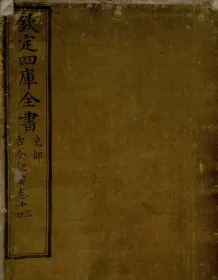 欽定四庫全書
史部
古今紀要卷十三
四